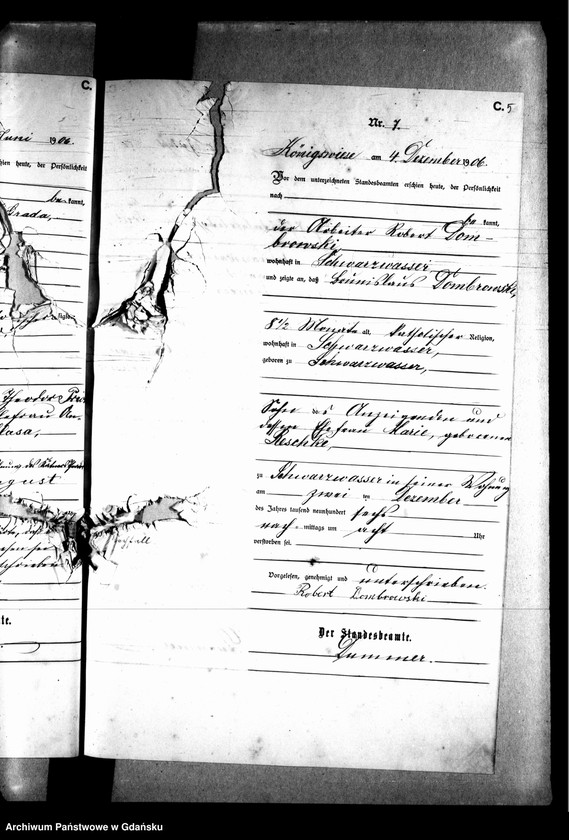 C.
Juni 1906.
hien heute, der Persönlichkeit
be kannt,
Prada,
Theodor
Ehefrau
lasa,
gust
te.
C. 5
Nr. 7.
Königswiese am 4. Dezember 1906.
Vor dem unterzeichneten Standesbeamten erschien heute, der Persönlichkeit
nach
be kannt,
der Arbeiter Robert Dom-
browski,
wohnhaft in Schwarzwasser
und zeigte an, daß Bronislaus Dombrowski,
8 1/2 Monate alt, katholischer Religion,
wohnhaft in Schwarzwasser,
geboren zu Schwarzwasser,
Sohn des Anzeigenden und
dessen Ehefrau Marie, geborenen
Reschke,
zu Schwarzwasser in seiner Wohnung
am zwei ten Dezember
des Jahres tausend neunhundert sechs
nach mittags um acht Uhr
verstorben sei.
Vorgelesen, genehmigt und unterschrieben.
Robert Dombrowski
Der Standesbeamte.
Dummer.
Archiwum Państwowe w Gdańsku